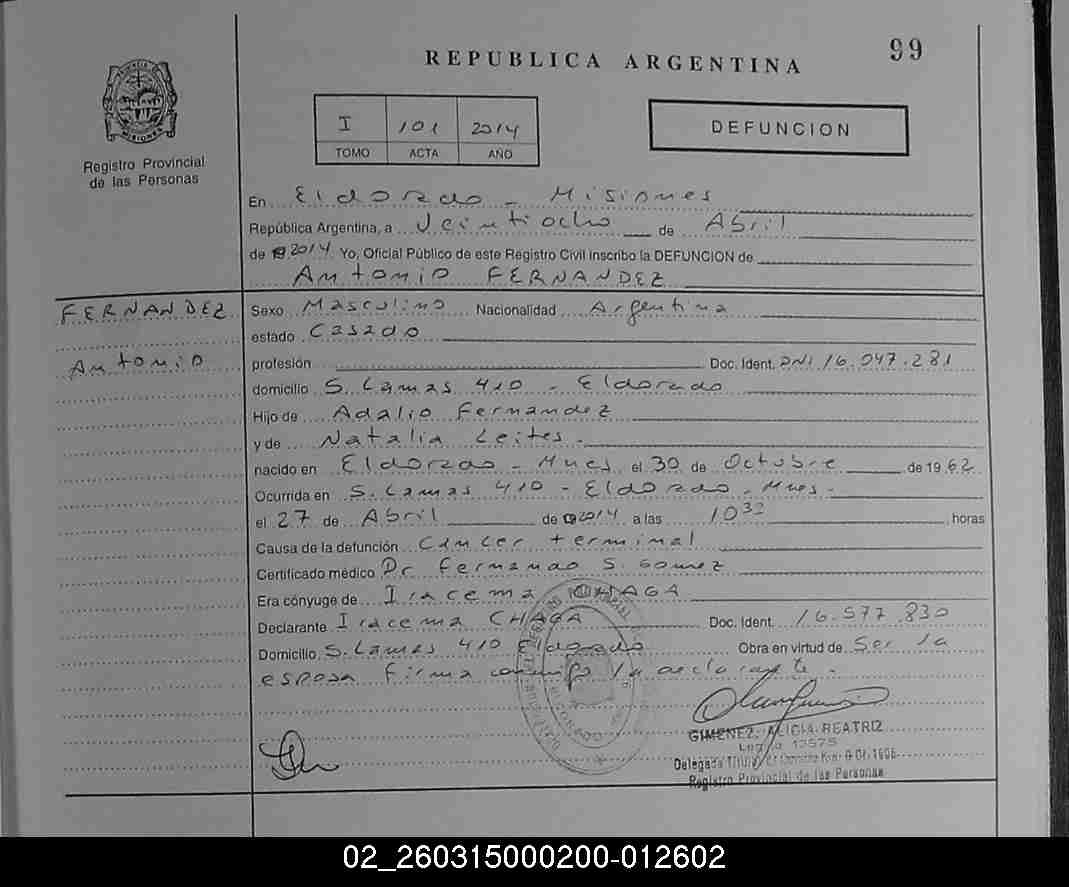 REPUBLICA ARGENTINA
99
I 101 2014
TOMO ACTA AÑO
DEFUNCION
PROVINCIA DE
MISIONES
Registro Provincial
de las Personas
En Eldorado - Misiones
República Argentina, a Veintiocho de Abril
de 2014 Yo, Oficial Público de este Registro Civil inscribo la DEFUNCION de
Antonio FERNANDEZ
FERNANDEZ
Antonio
Sexo Masculino Nacionalidad Argentina
estado Casado
profesión Doc. Ident. DNI 16.047.281
domicilio S. Lamas 410 - Eldorado
Hijo de Adalio Fernandez
y de Natalia Leites.
nacido en Eldorado - Mnes el 30 de Octubre de 1962
Ocurrida en S. Lamas 410 - Eldorado - Mnes -
el 27 de Abril de 2014 a las 10 horas
Causa de la defunción Cancer terminal
Certificado médico Dr Fernando S. Gomez
Era cónyuge de Iracema CHAGA
Declarante Iracema CHAGA Doc. Ident. 16.577.830
Domicilio S. Lamas 410 Eldorado Obra en virtud de Ser la
esposa firma conmigo la declarante -
GIMENEZ, ALICIA BEATRIZ
Delegada Titular
Registro Provincial de las Personas
02_260315000200-012602